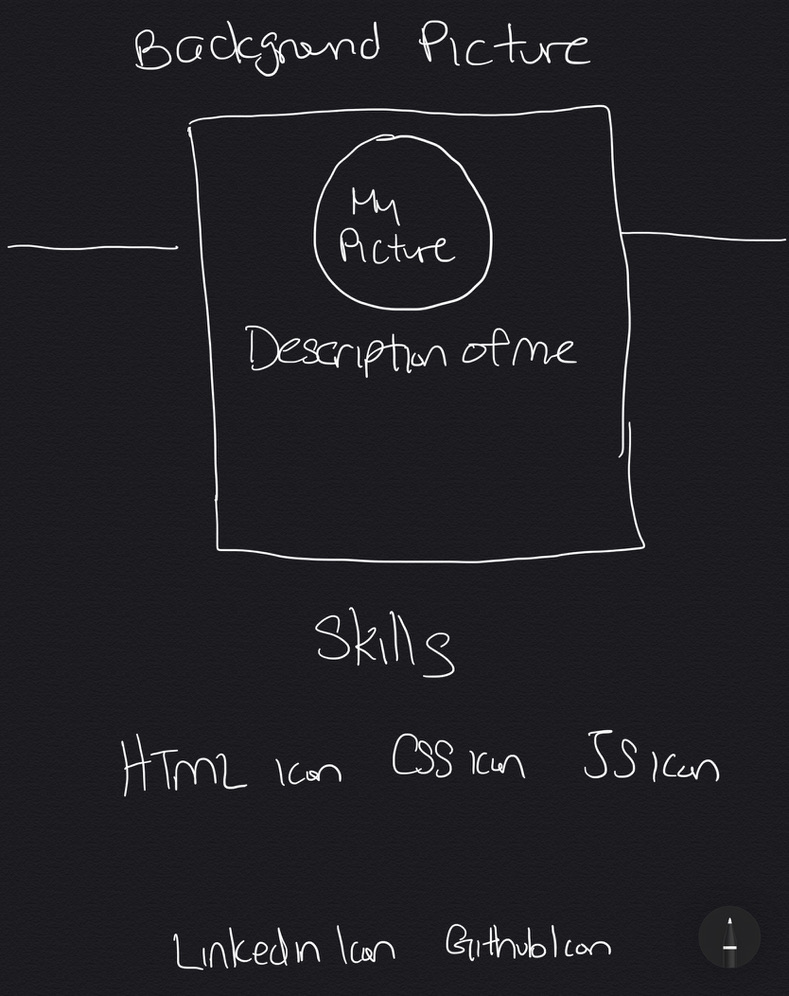 Background Picture
My
Picture
Description of me
Skills
HTML Icon CSS icon JS icon
Linkedin Icon Github Icon